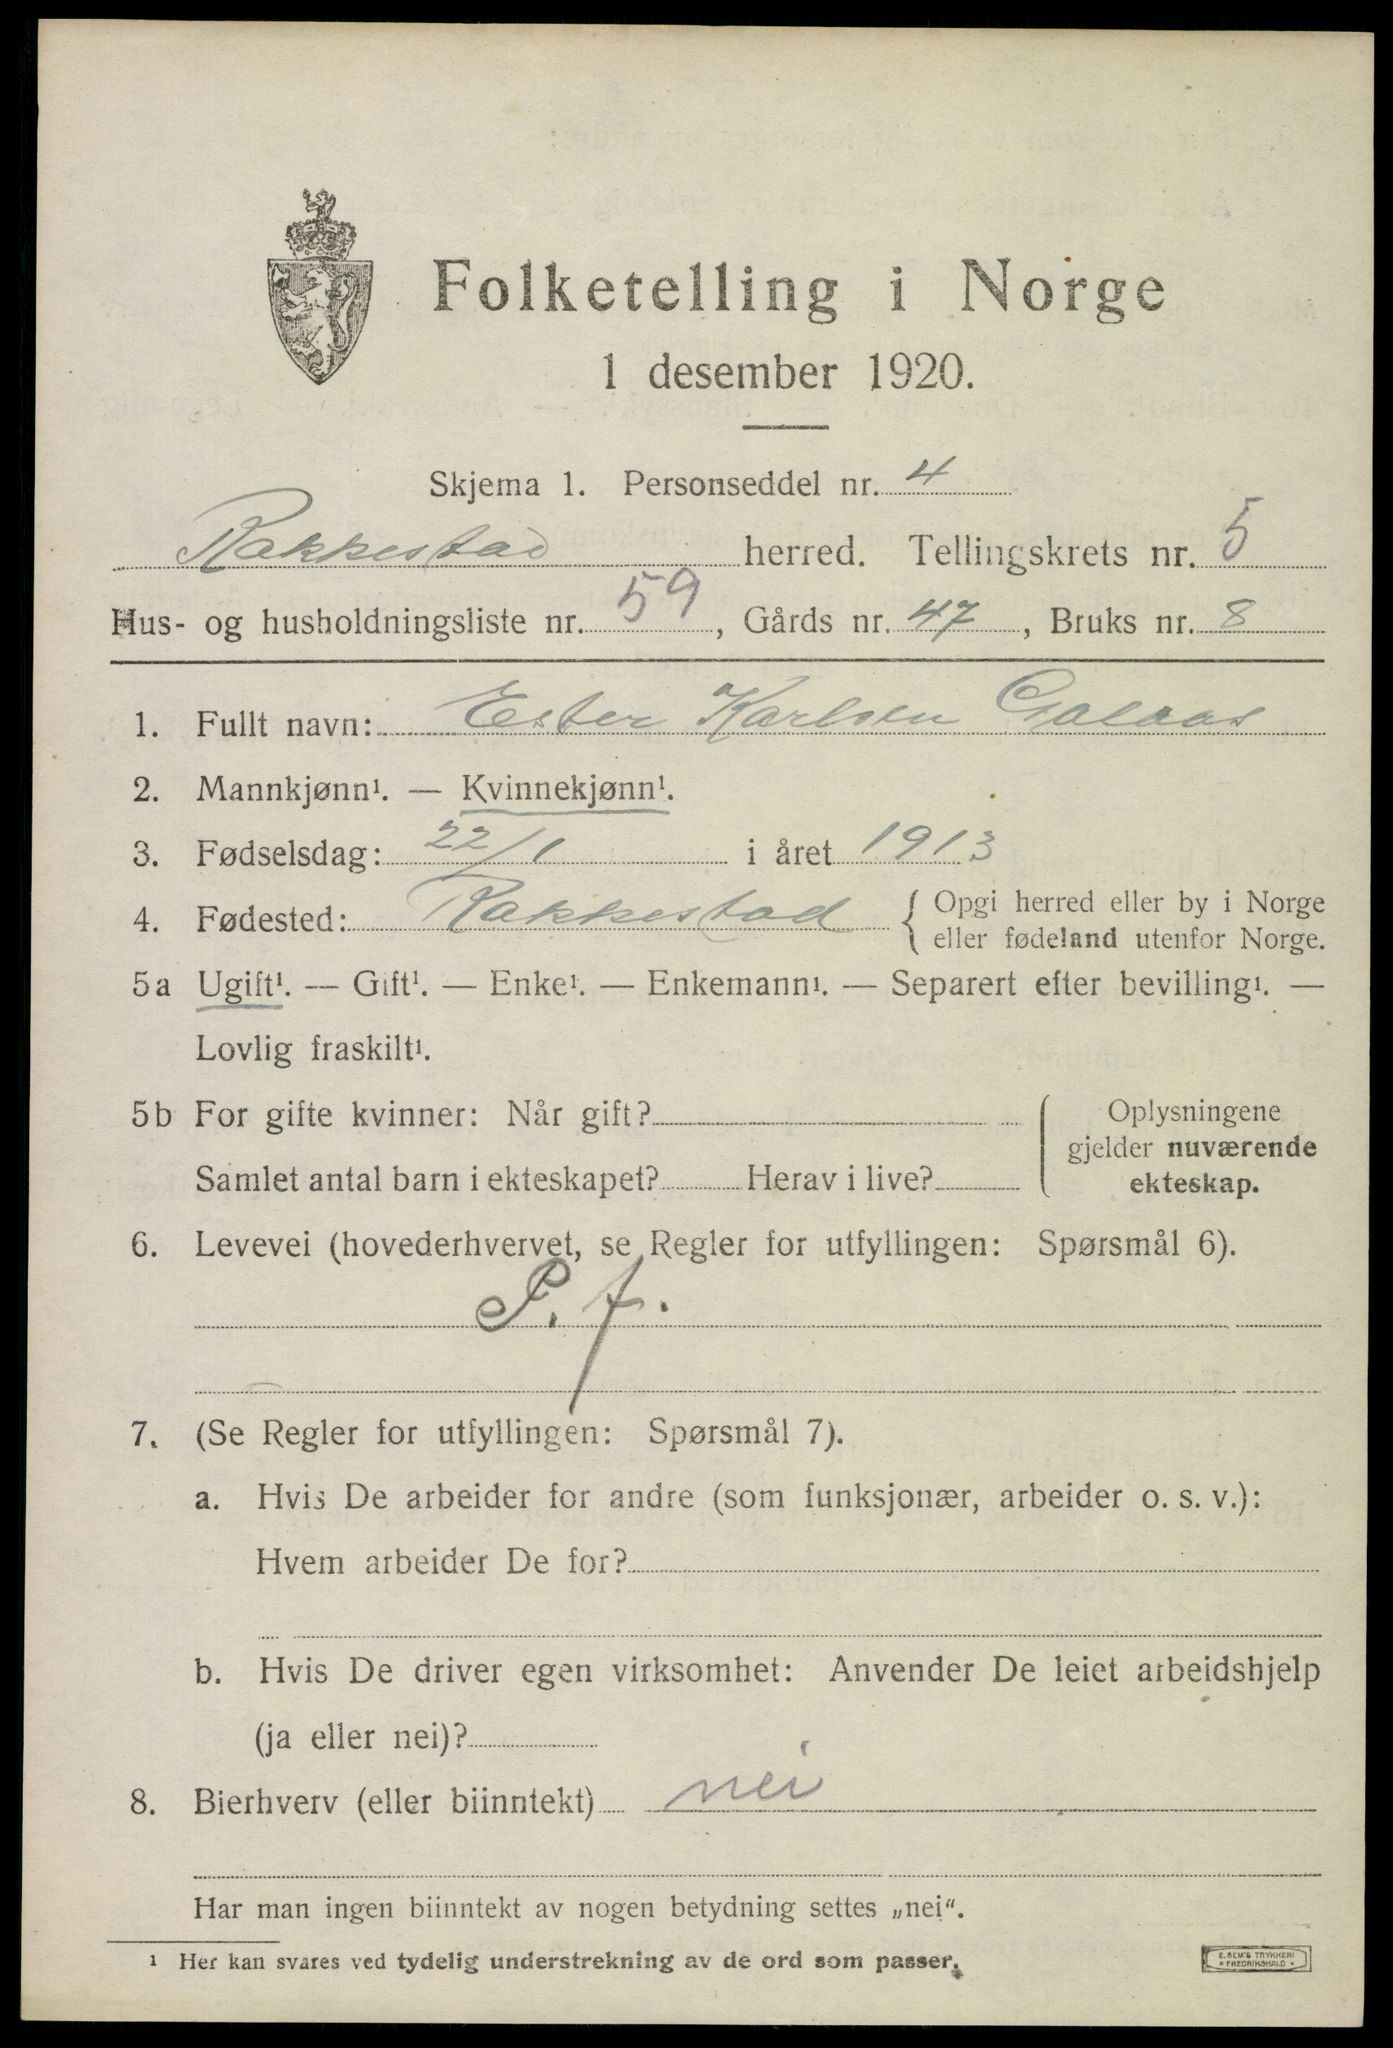 Folketelling i Norge
1 desember 1920.
Skjema 1. Personseddel nr. 4
Rakkestad herred. Tellingskrets nr. 5
Hus- og husholdningsliste nr. 59, Gårds nr. 47, Bruks nr. 8
1. Fullt navn: Ester Karlsen
2. Mannkjønn¹. — Kvinnekjønn¹.
3. Fødselsdag: 22/1 i året 1913
4. Fødested: Rakkestad { Opgi herred eller by i Norge
eller fødeland utenfor Norge.
5a Ugift¹. — Gift¹. — Enke¹. — Enkemann¹. — Separert efter bevilling¹. —
Lovlig fraskilt¹.
5b For gifte kvinner: Når gift?
Samlet antal barn i ekteskapet? Herav i live?
Oplysningene
gjelder nuværende
ekteskap.
6. Levevei (hovederhvervet, se Regler for utfyllingen: Spørsmål 6).
P. f.
7. (Se Regler for utfyllingen: Spørsmål 7).
a. Hvis De arbeider for andre (som funksjonær, arbeider o. s. v.):
Hvem arbeider De for?
b. Hvis De driver egen virksomhet: Anvender De leiet arbeidshjelp
(ja eller nei)?
8. Bierhverv (eller biinntekt) nei
Har man ingen biinntekt av nogen betydning settes „nei“.
¹ Her kan svares ved tydelig understrekning av de ord som passer.
E. SEM'S TRYKKERI
FREDRIKSHALD